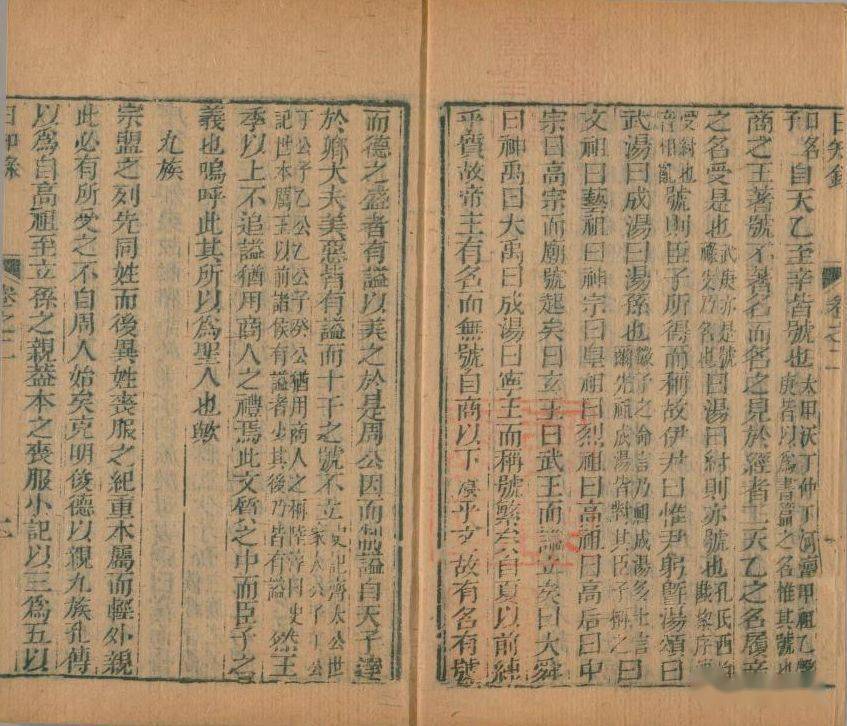 日知錄 卷之二
自天乙至辛皆號也太甲沃丁仲丁河亶甲祖乙盤庚皆以爲書篇之名惟其號也
商之王著號不著名而名之見於經者二天乙之名履辛
之名受是也武庚亦是號祿父乃名也曰湯曰紂則亦號也孔氏西伯戡黎序傳
受紂也音相亂號則臣子所得而稱故伊尹曰惟尹躬曁湯頌曰
武湯曰成湯曰湯孫也微子之命言乃祖成湯多士言爾先祖成湯省對其臣子稱之曰
文祖曰藝祖曰神宗曰皇祖曰烈祖曰高祖曰高后曰中
宗曰高宗而廟號起矣曰玄王曰武王而謚立矣曰大舜
曰神禹曰大禹曰成湯曰寧王而稱號繁矣自夏以前純
乎質故帝王有名而無號自商以下寖乎文故有名有號
而德之盛者有謚以美之於是周公因而制謚自天子達
於卿大夫美惡皆有謚而十干之號不立史記齊太公世家太公子丁公
丁公子乙公乙公子癸公猶用商人之稱陸淳曰史記世本厲王以前諸侯有謚者少其後乃皆有謚然王
季以上不追謚猶用商人之禮焉此文質之中而臣子之
義也嗚呼此其所以爲聖人也歟
九族
宗盟之列先同姓而後異姓喪服之紀重本屬而輕外親
此必有所受之不自周人始矣克明俊德以親九族孔傳
以爲自高祖至玄孫之親蓋本之喪服小記以三爲五以
日知錄 卷之二